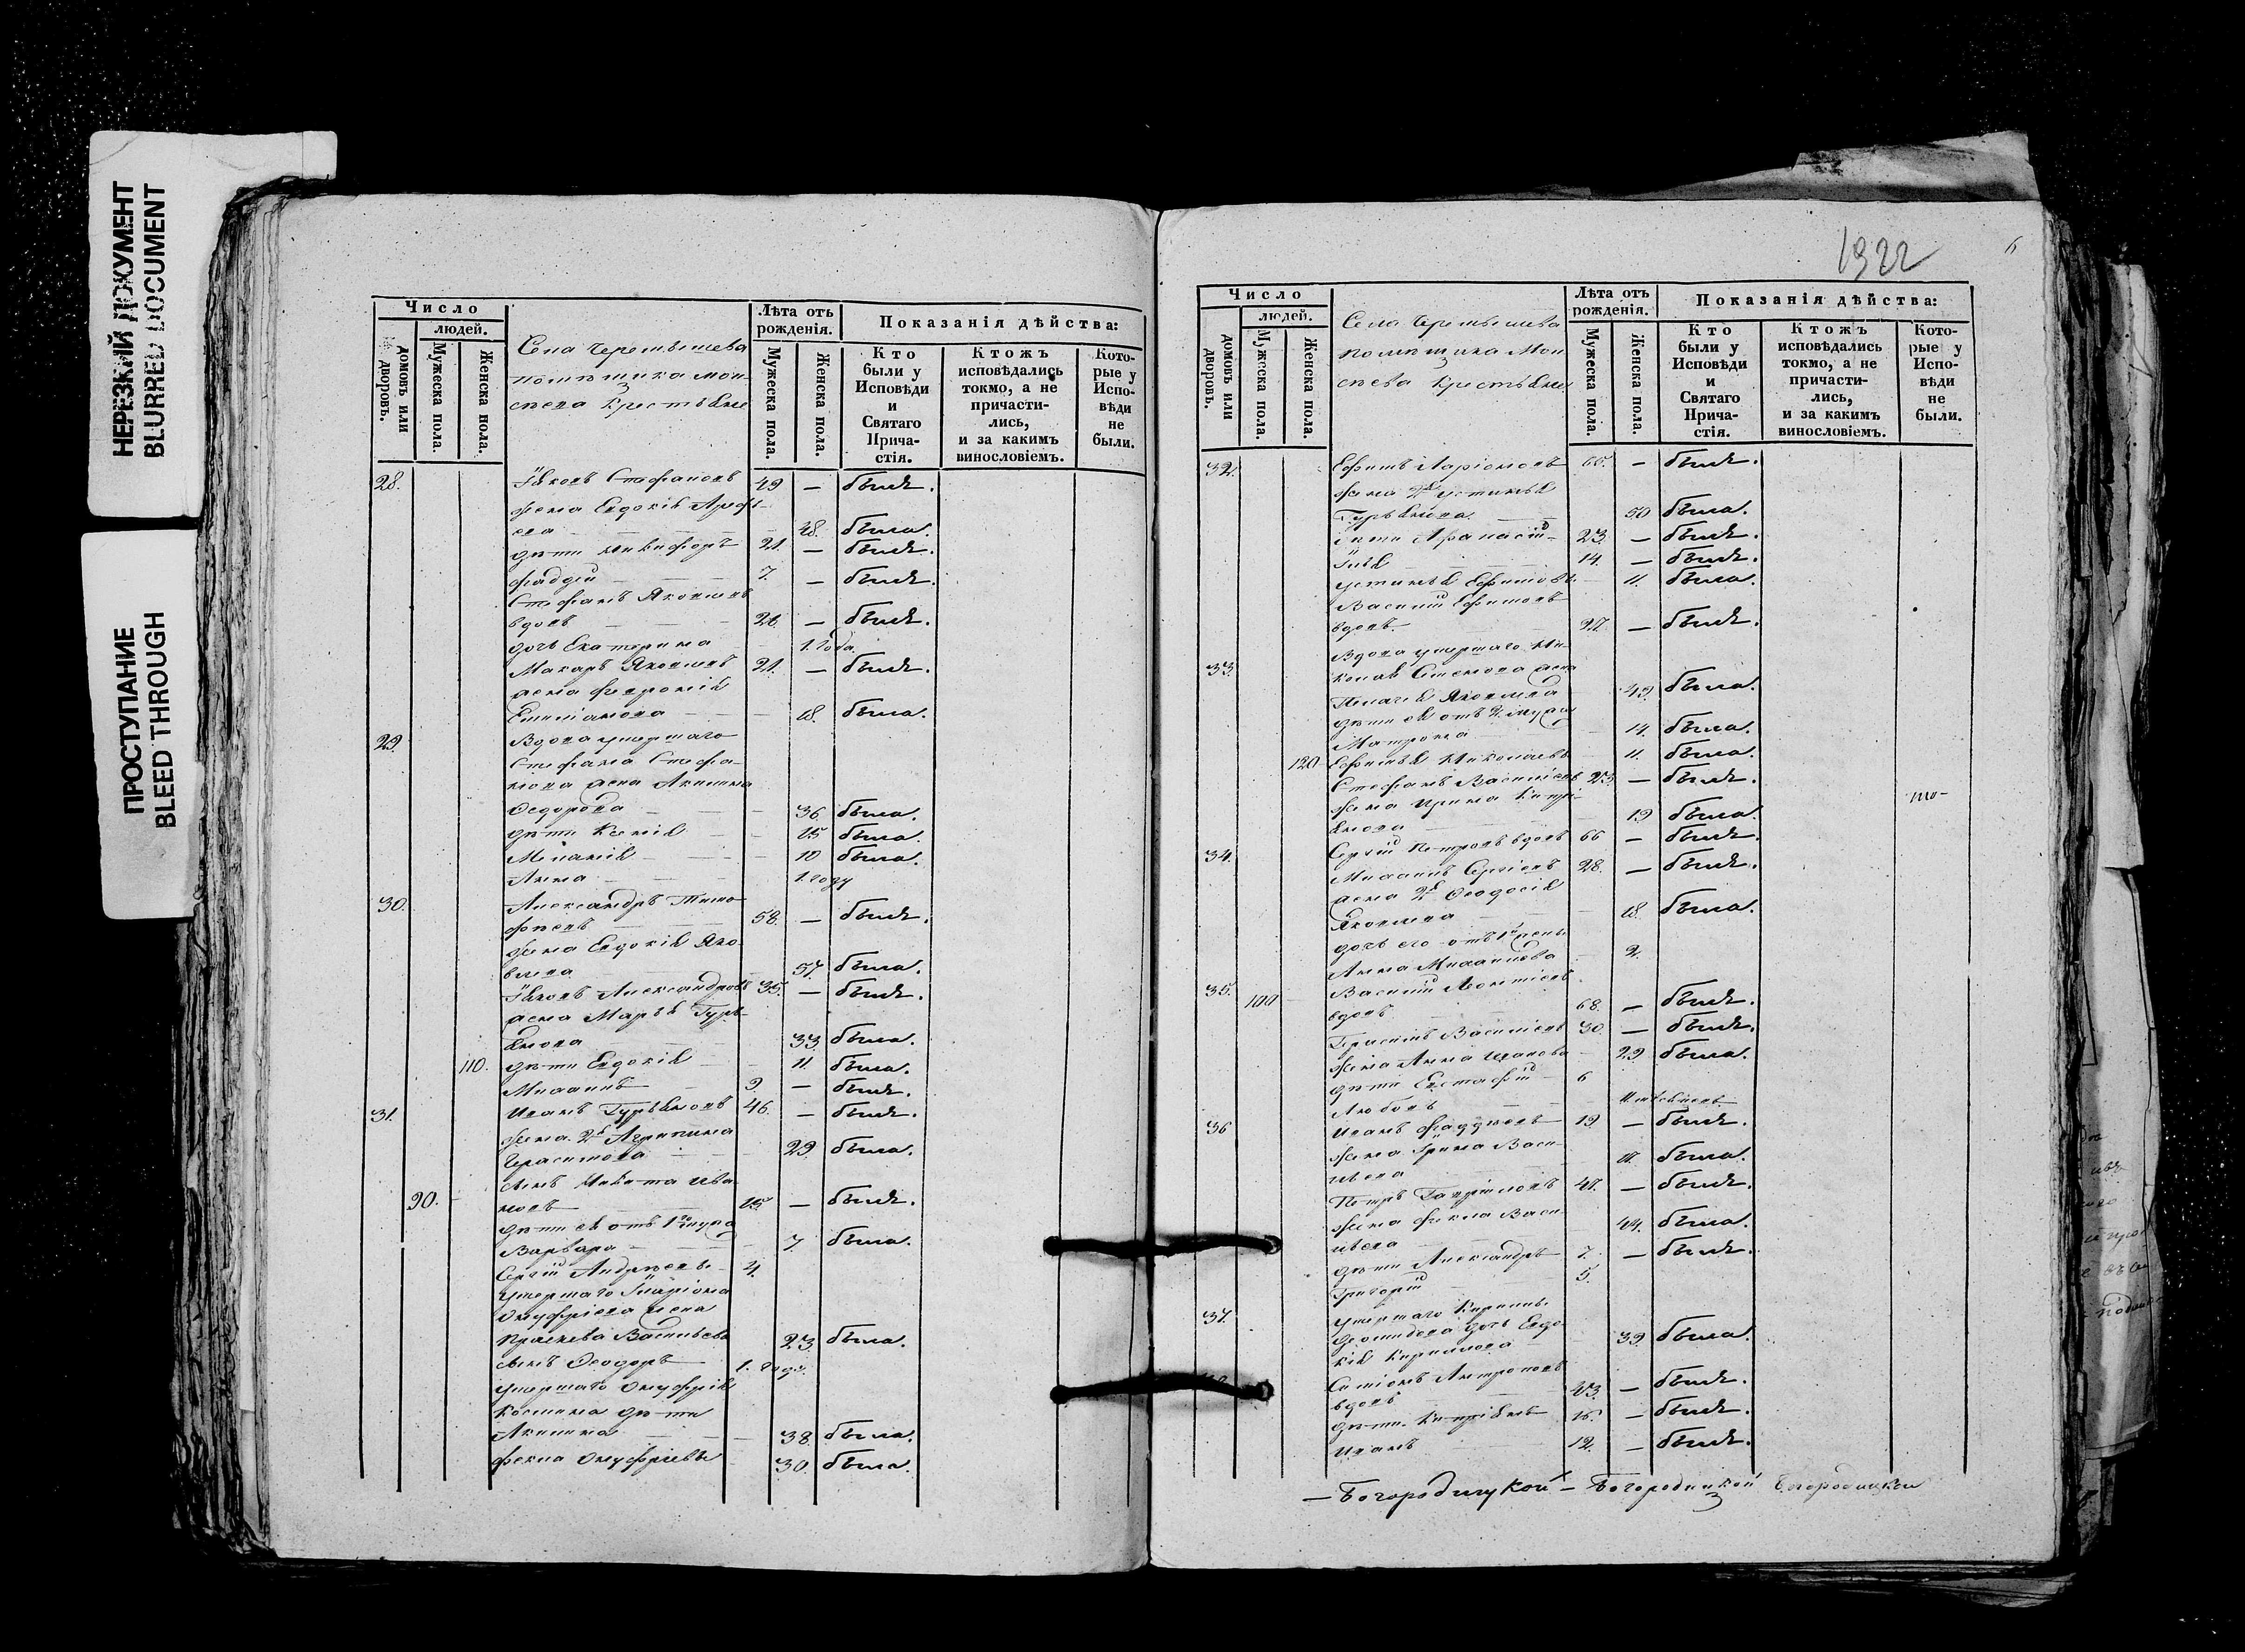 НЕРЕЗКИЙ ДОКУМЕНТ
BLURRED DOCUMENT
ПРОСТУПАНИЕ
BLEED THROUGH
Число
людей.
домовъ или дворовъ.
Мужеска пола.
Женска пола.
Села Чернышева
помѣщика Мон-
сѣева крестьяне
Лѣта отъ рожденія.
Мужеска пола.
Женска пола.
Показанія дѣйства:
Кто были у Исповѣди и Святаго Прича-стія.
Ктожъ исповѣдались токмо, а не причасти-лись, и за какимъ винословіемъ.
Кото-рые у Испо-вѣди не были.
28. Іяковъ Стефановъ 49 — былъ.
жена Евдокія Арефь-
ева 48. была.
дѣти Никифоръ 21. — былъ.
Фаддей 7. — былъ.
Стефанъ Яковлевъ
вдовъ — былъ.
дочь Екатерина 1. года
Макаръ Яковлевъ 21. — былъ.
жена Феврония
18. была.
29. Вдова умершаго
Стефана Стефа-
нова жена Акилина
Ѳедорова 36 была.
дѣти Ксенія 15 была.
Меланія 10 была.
Анна 1. году
30. Александръ Тимо-
фѣевъ 58. — былъ.
жена Евдокія Яко-
влева 57. была.
Іяковъ Александровъ 35. — былъ.
жена Марья Гурь-
янова 33. была.
110. дѣти Евдокія 11. была.
Михаилъ 9. — былъ.
31. Иванъ Гурьяновъ 46. — былъ.
жена 2я Агрипина
Герасимова 29. была.
90. сынъ Никита Ива-
новъ 15. — былъ.
дѣти ея отъ 1го мужа
Варвара 7. была.
Сергій Андреевъ 4.
умершаго Иларіона
Онуфріева жена
Прасковья Васильева 23. была.
сынъ Ѳеодоръ 1. года.
умершаго Онуфрія
дѣти
Акилина 38. была.
Фекла Онуфріевы 30. была.
1922
6
Число
людей.
домовъ или дворовъ.
Мужеска пола.
Женска пола.
Села Чернышева
помѣщика Мон-
сѣева крестьяне
Лѣта отъ рожденія.
Мужеска пола.
Женска пола.
Показанія дѣйства:
Кто были у Исповѣди и Святаго Прича-стія.
Ктожъ исповѣдались токмо, а не причасти-лись, и за какимъ винословіемъ.
Кото-рые у Испо-вѣди не были.
32. Ефимъ Ларіоновъ — былъ.
жена 2я Устинья
Гурьянова 50 была.
дѣти Афанасій 23. — былъ.
Илья 14. — былъ.
Устинья Ефимовы 11. была.
Василій Ефимовъ
вдовъ 27. — былъ.
33. Вдова умершаго Ни-
колая жена
Пелагея Яковлева 49. была.
дѣти ея отъ 2. мужа
Матрона 14. была.
120 Ефимья Николаевы 11. была.
Стефанъ Васильевъ 23. — былъ.
жена Ирина Кипрі-
янова 19 была.
34. Сергій Петровъ вдовъ 66 — былъ.
Михаилъ Сергіевъ 28. — былъ.
жена 2я Ѳеодосія
Яковлева 18. была.
дочь его отъ 1й жены
Анна Михаилова 2.
35. 100 Василій Леонтіевъ
вдовъ 68. — былъ.
Герасимъ Васильевъ 30. — былъ.
жена Анна Иванова 29 была.
дѣти Евстафій 6
Любовь
36 Иванъ Фаддѣевъ 19. — былъ.
жена Ирина Васи-
льева была.
Петръ Гавріиловъ 47. — былъ.
жена Фекла Васи-
льева 44. была.
дѣти Александръ 7. — былъ.
Григорій 5.
37. умершаго Кирилы
дочь Евдо-
кія Кирилова 39. была.
Симіонъ Антроповъ
вдовъ 43. — былъ.
дѣти Кипріянъ 16. — былъ.
Иванъ 12. — былъ.
— Богородицкой — Богородицкой Богородицкой